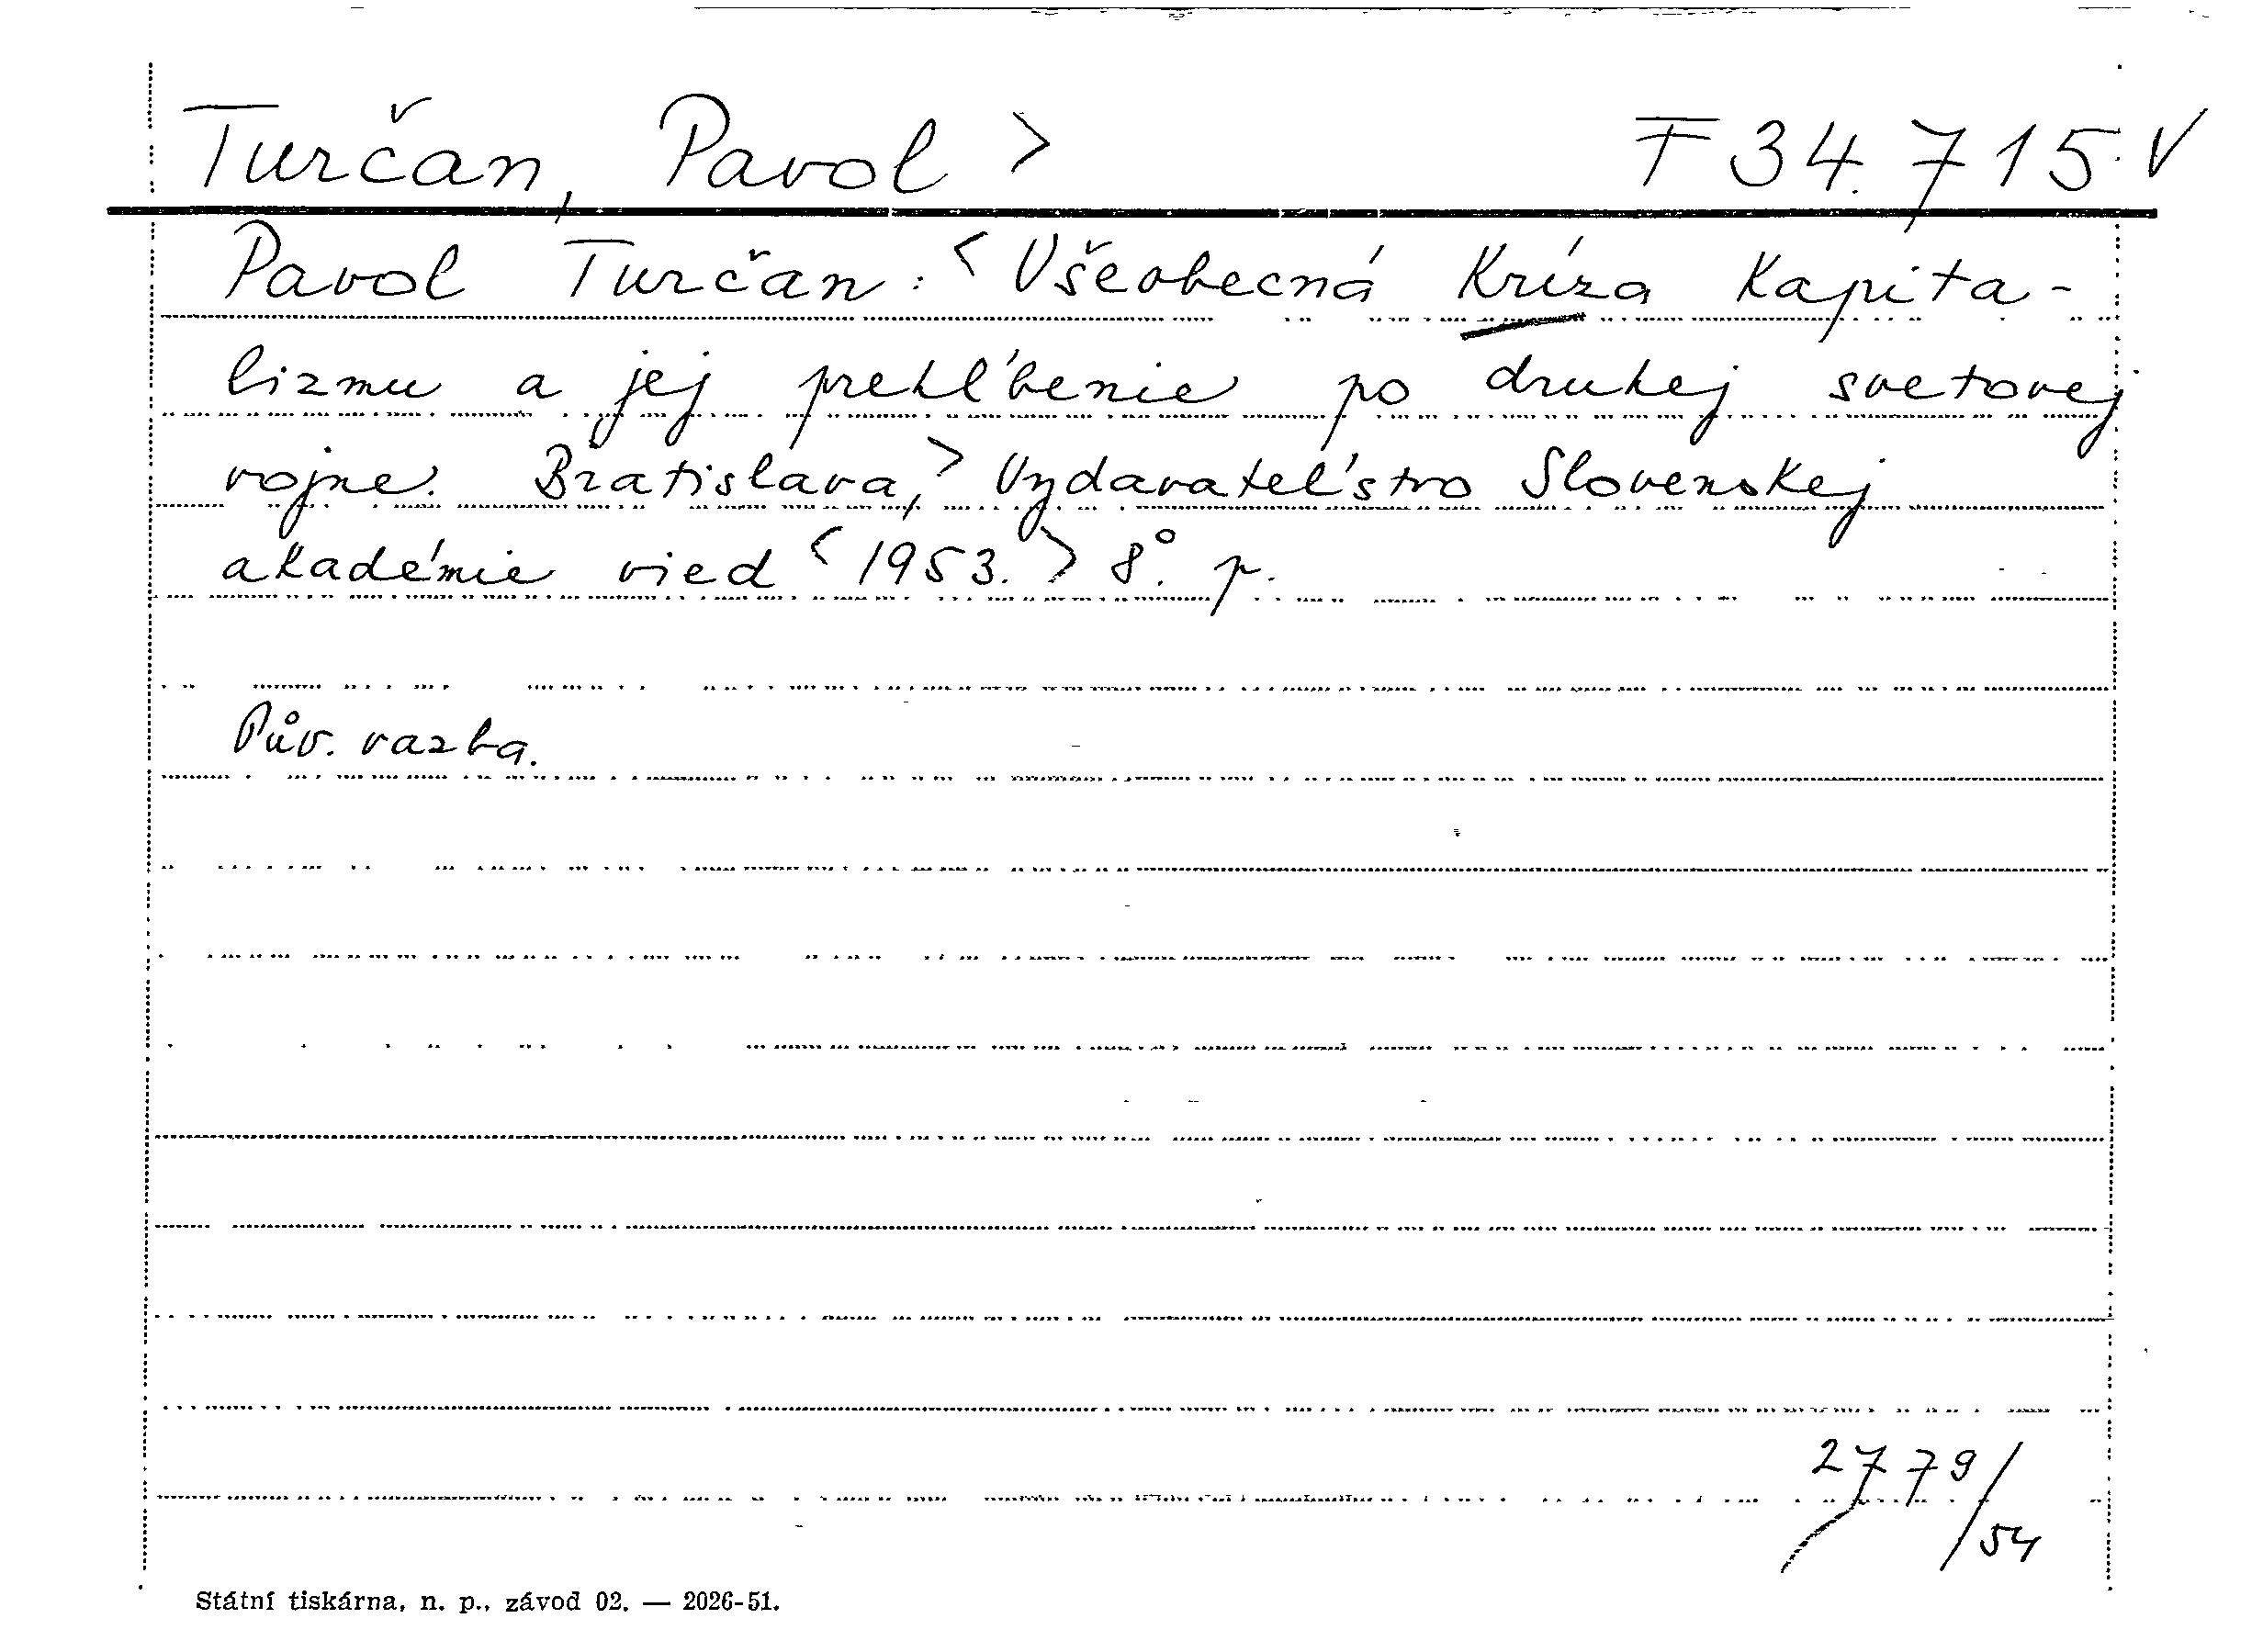 Turčan, Pavol > F 34.715 V
Pavol Turčan: < Všeobecná Kríza Kapita-
lizmu a jej prehĺbenie po druhej svetovej
vojne. Bratislava, > Vydavateľstvo Slovenskej
akadémie vied < 1953. > 8°. p.
Pův. vazba.
2779/54
Státní tiskárna, n. p., závod 02. — 2026-51.